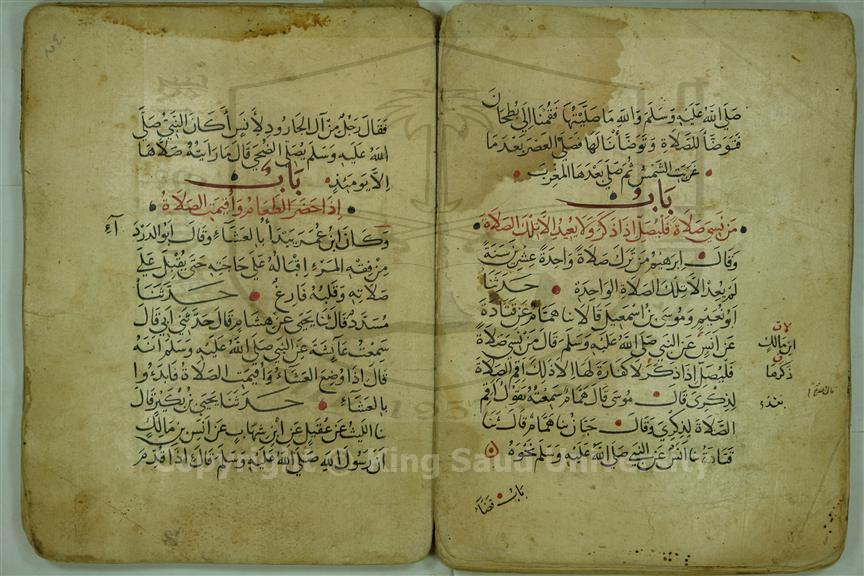 صلى الله عليه وسلم والله ما صليتها فقمنا إلى بطحان
فتوضأ للصلاة وتوضأنا لها فصلى العصر بعد ما
غربت الشمس ثم صلى بعدها المغرب
باب
من نسي صلاة فليصل إذا ذكر ولا يعيد إلا تلك الصلاة
وقال ابرهيم من ترك صلاة واحدة عشرين سنة
لم يعد إلا تلك الصلاة الواحدة حدثنا
أبو نعيم وموسى بن اسمعيل قالا نا همام عن قتادة
عن أنس عن النبي صلى الله عليه وسلم قال من نسي صلاة
فليصل إذا ذكر لا كفارة لها إلا ذلك اقم الصلاة
لذكرى قال موسى قال همام سمعته يقول اقم
الصلاة لذكري وقال حبان نا همام قال نا
قتادة نا أنس عن النبي صلى الله عليه وسلم نحوه
لا
ابن مالك
ذكرها
بعد
باب قضاء
فقال رجل من آل الجارود لأنس أكان النبي صلى
الله عليه وسلم يصلي الضحى قال ما رأيته صلاها
إلا يومئذ
باب
إذا حضر الطعام وأقيمت الصلاة
وكان ابن عمر يبدأ بالعشاء وقال أبو الدرداء
من فقه المرء إقباله على حاجته حتى يقبل على
صلاته وقلبه فارغ حدثنا
مسدد قال نا يحيى عن هشام قال حدثني أبي قال
سمعت عائشة عن النبي صلى الله عليه وسلم أنه
قال إذا وضع العشاء وأقيمت الصلاة فابدءوا
بالعشاء حدثنا يحيى بن بكير قال
نا الليث عن عقيل عن ابن شهاب عن أنس بن مالك
أن رسول الله صلى الله عليه وسلم قال إذا قدم
1957
Copyright © King Saud University